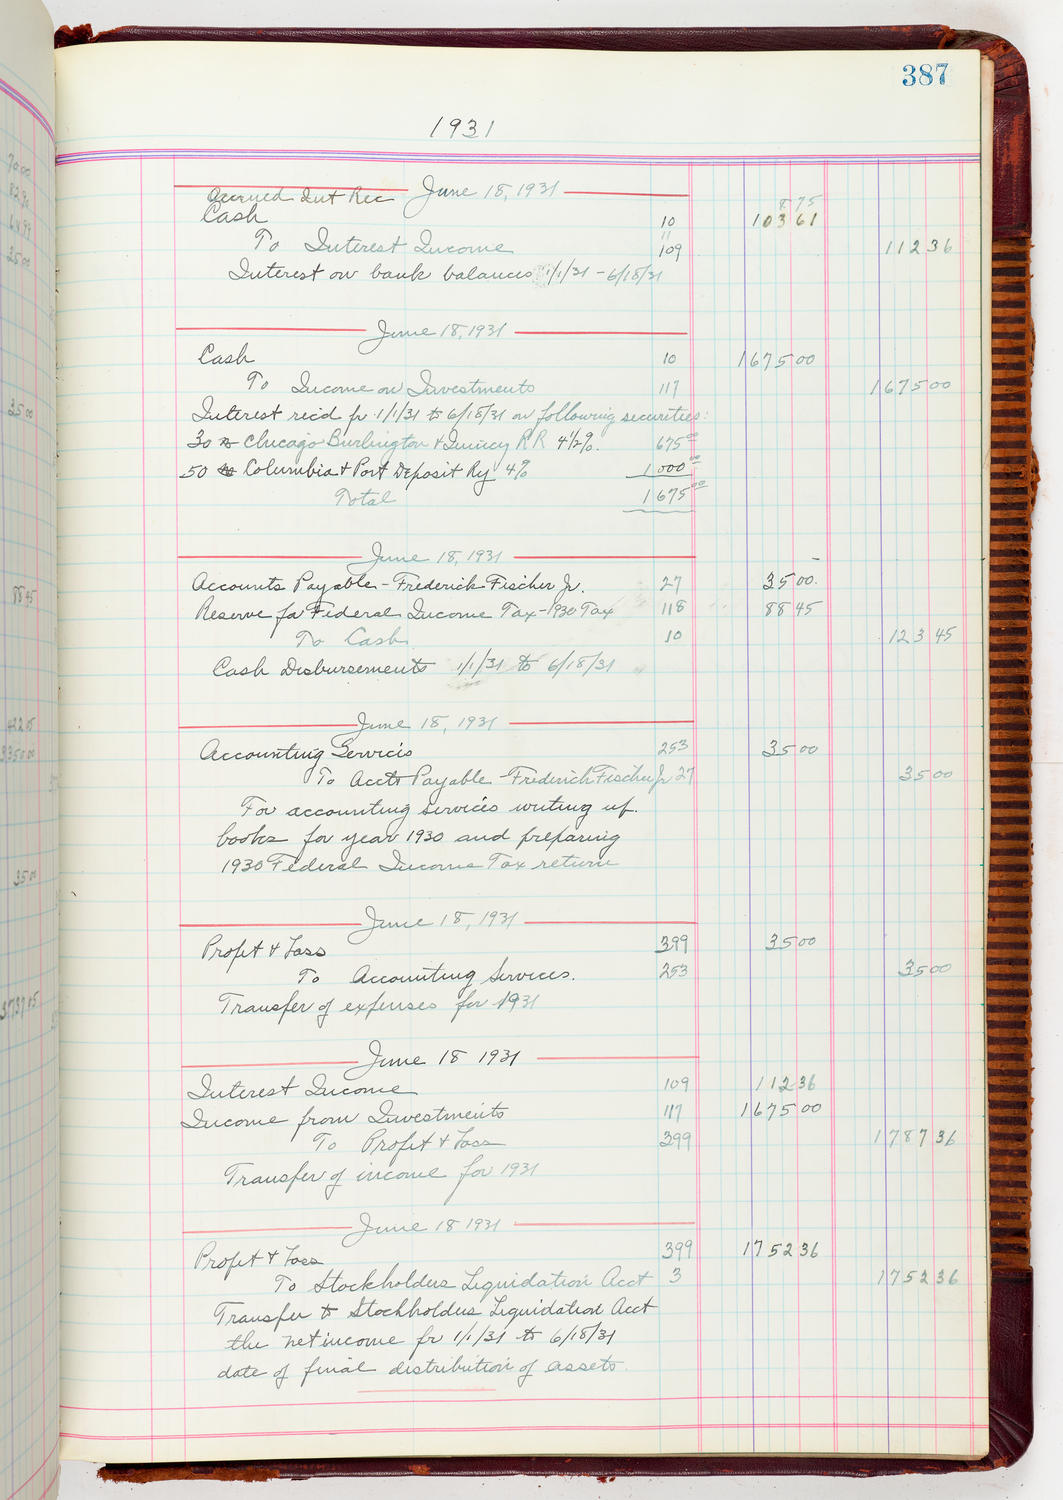 387
1931
June 18, 1931
Accrued Int Rec 8 75
Cash 10 103 61
11
To Interest Income 109 112 36
Interest on bank balances 1/1/31 - 6/18/31
June 18, 1931
Cash 10 1675 00
To Income on Investments 117 1675 00
Interest rec'd fr 1/1/31 to 6/18/31 on following securities:
30 Chicago Burlington & Quincy RR 4½%. 675 00
50 Columbia & Port Deposit Ry 4% 1000 00
Total 1675 00
June 18, 1931
Accounts Payable - Frederick Fischer Jr. 27 35 00
Reserve for Federal Income Tax - 1930 Tax 118 88 45
To Cash 10 123 45
Cash Disbursements 1/1/31 to 6/18/31
June 18, 1931
Accounting Services 253 35 00
To Accts Payable - Frederick Fischer Jr 27 35 00
For accounting services writing up
books for year 1930 and preparing
1930 Federal Income Tax return
June 18, 1931
Profit & Loss 399 35 00
To Accounting Services. 253 35 00
Transfer of expenses for 1931
June 18 1931
Interest Income 109 112 36
Income from Investments 117 1675 00
To Profit & Loss 399 1787 36
Transfer of income for 1931
June 18 1931
Profit & Loss 399 1752 36
To Stockholders Liquidation Acct 3 1752 36
Transfer to Stockholders Liquidation Acct
the net income fr 1/1/31 to 6/18/31
date of final distribution of assets.